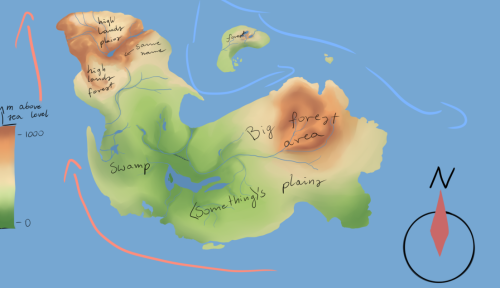 high
lands
plains
same
name
forest
high
lands
forest
m above
sea level
1000
Big forest
area
Swamp
(Something)'s plains
0
N